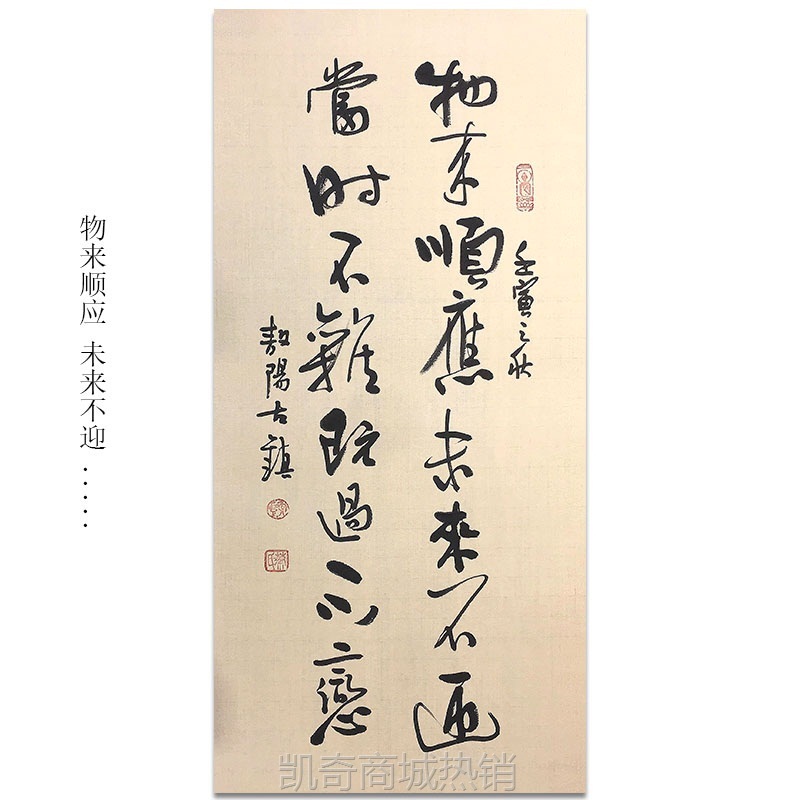 物来顺应 未来不迎
.....
壬寅之秋
物来順應未來不迎
當時不雜既過不戀
敖陽古鎮
凯奇商城热销